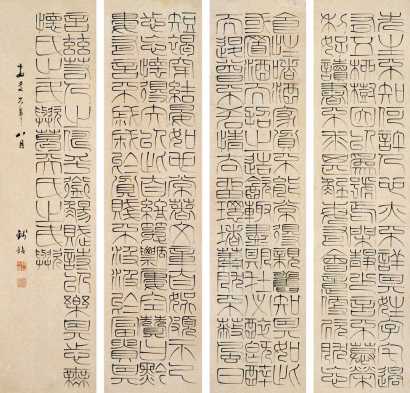 先生不知何許人也亦不詳其姓字宅邊
有五柳樹因以為號焉閑靜少言不慕榮
利好讀書不求甚解每有會意便欣然忘
食性嗜酒家貧不能常得親舊知其如此
或置酒而招之造飲輒盡期在必醉既醉
而退曾不吝情去留環堵蕭然不蔽風日
短褐穿結晏如也常著文章自娛頗示己
志忘懷得失以此自終贊曰黔
婁有言不戚戚於貧賤不汲汲於富貴其
言茲若人之儔乎銜觴賦詩以樂其志無
懷氏之民歟葛天氏之民歟
年八月